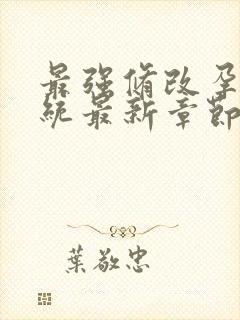 最强脩改孕
统最新章節
葉敬忠